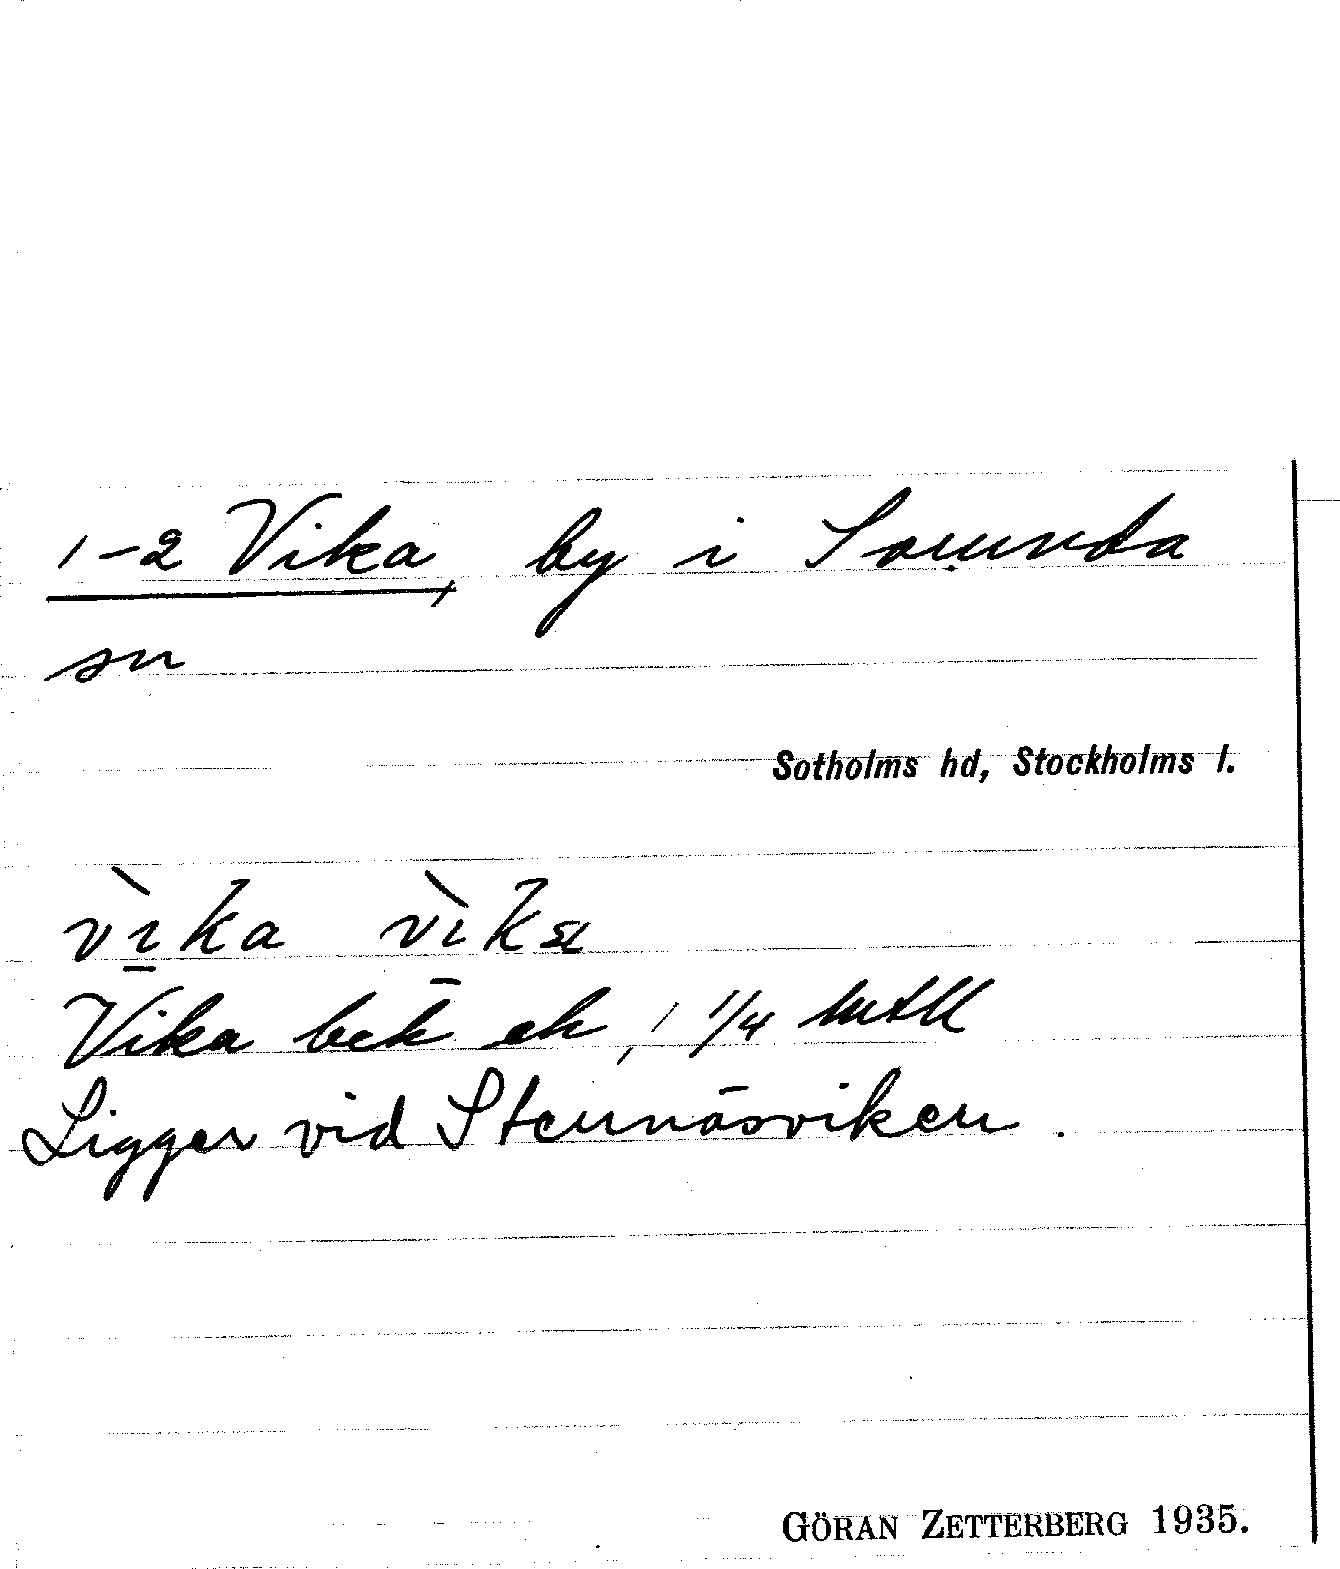 1-2 Vika, by i Sorunda
sn
Sotholms hd, Stockholms l.
vi̠ka
Vika bek ek, 1 1/4 mtl
Ligger vid Stennäsviken.
GÖRAN ZETTERBERG 1935.